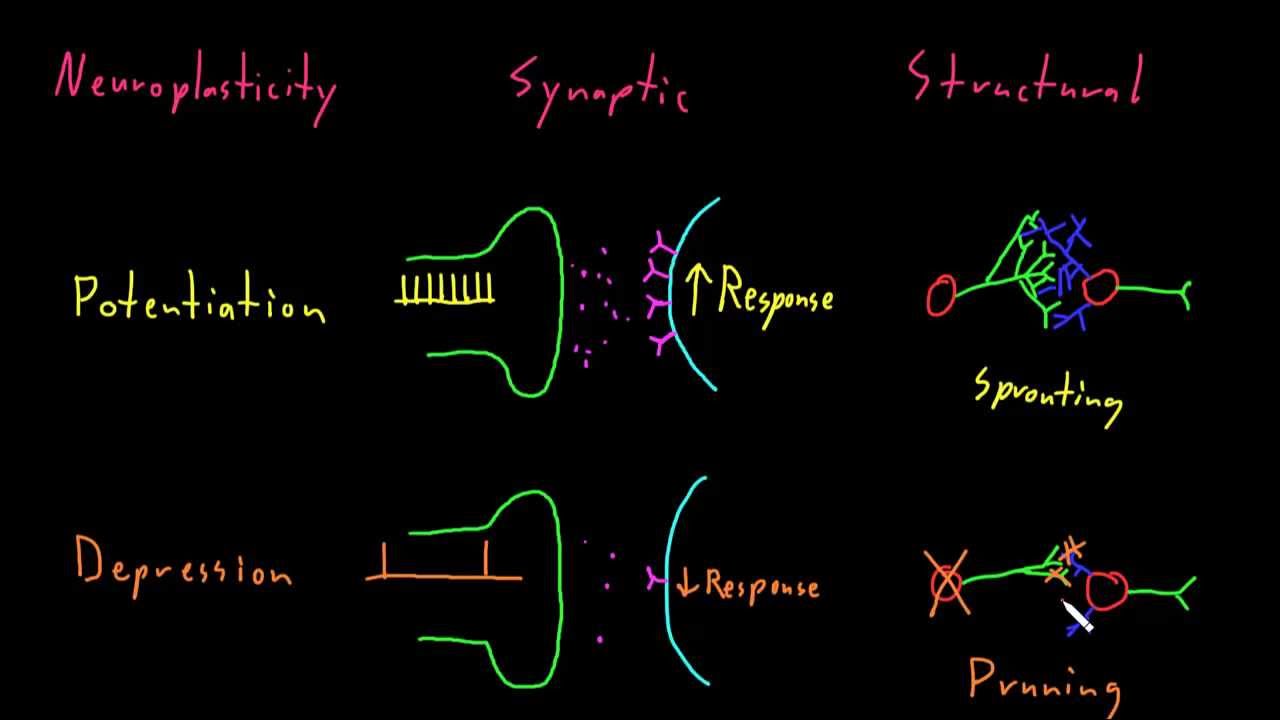 Neuroplasticity Synaptic Structural
Potentiation ↑ Response
Sprouting
Depression ↓ Response
Pruning